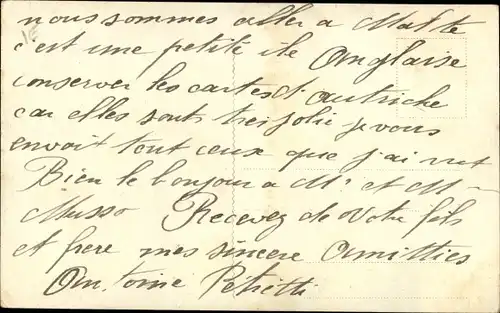 nous sommes aller a Malte
c'est une petite ile Anglaise
conserver les cartes d'autriche
car elles sont tres jolie je vous
envoit tout ceux que j'ai
Bien le bonjour a Mr et M
Musso Recevez de votre fils
et frere mes sincere Amitties
Antoine Petretti